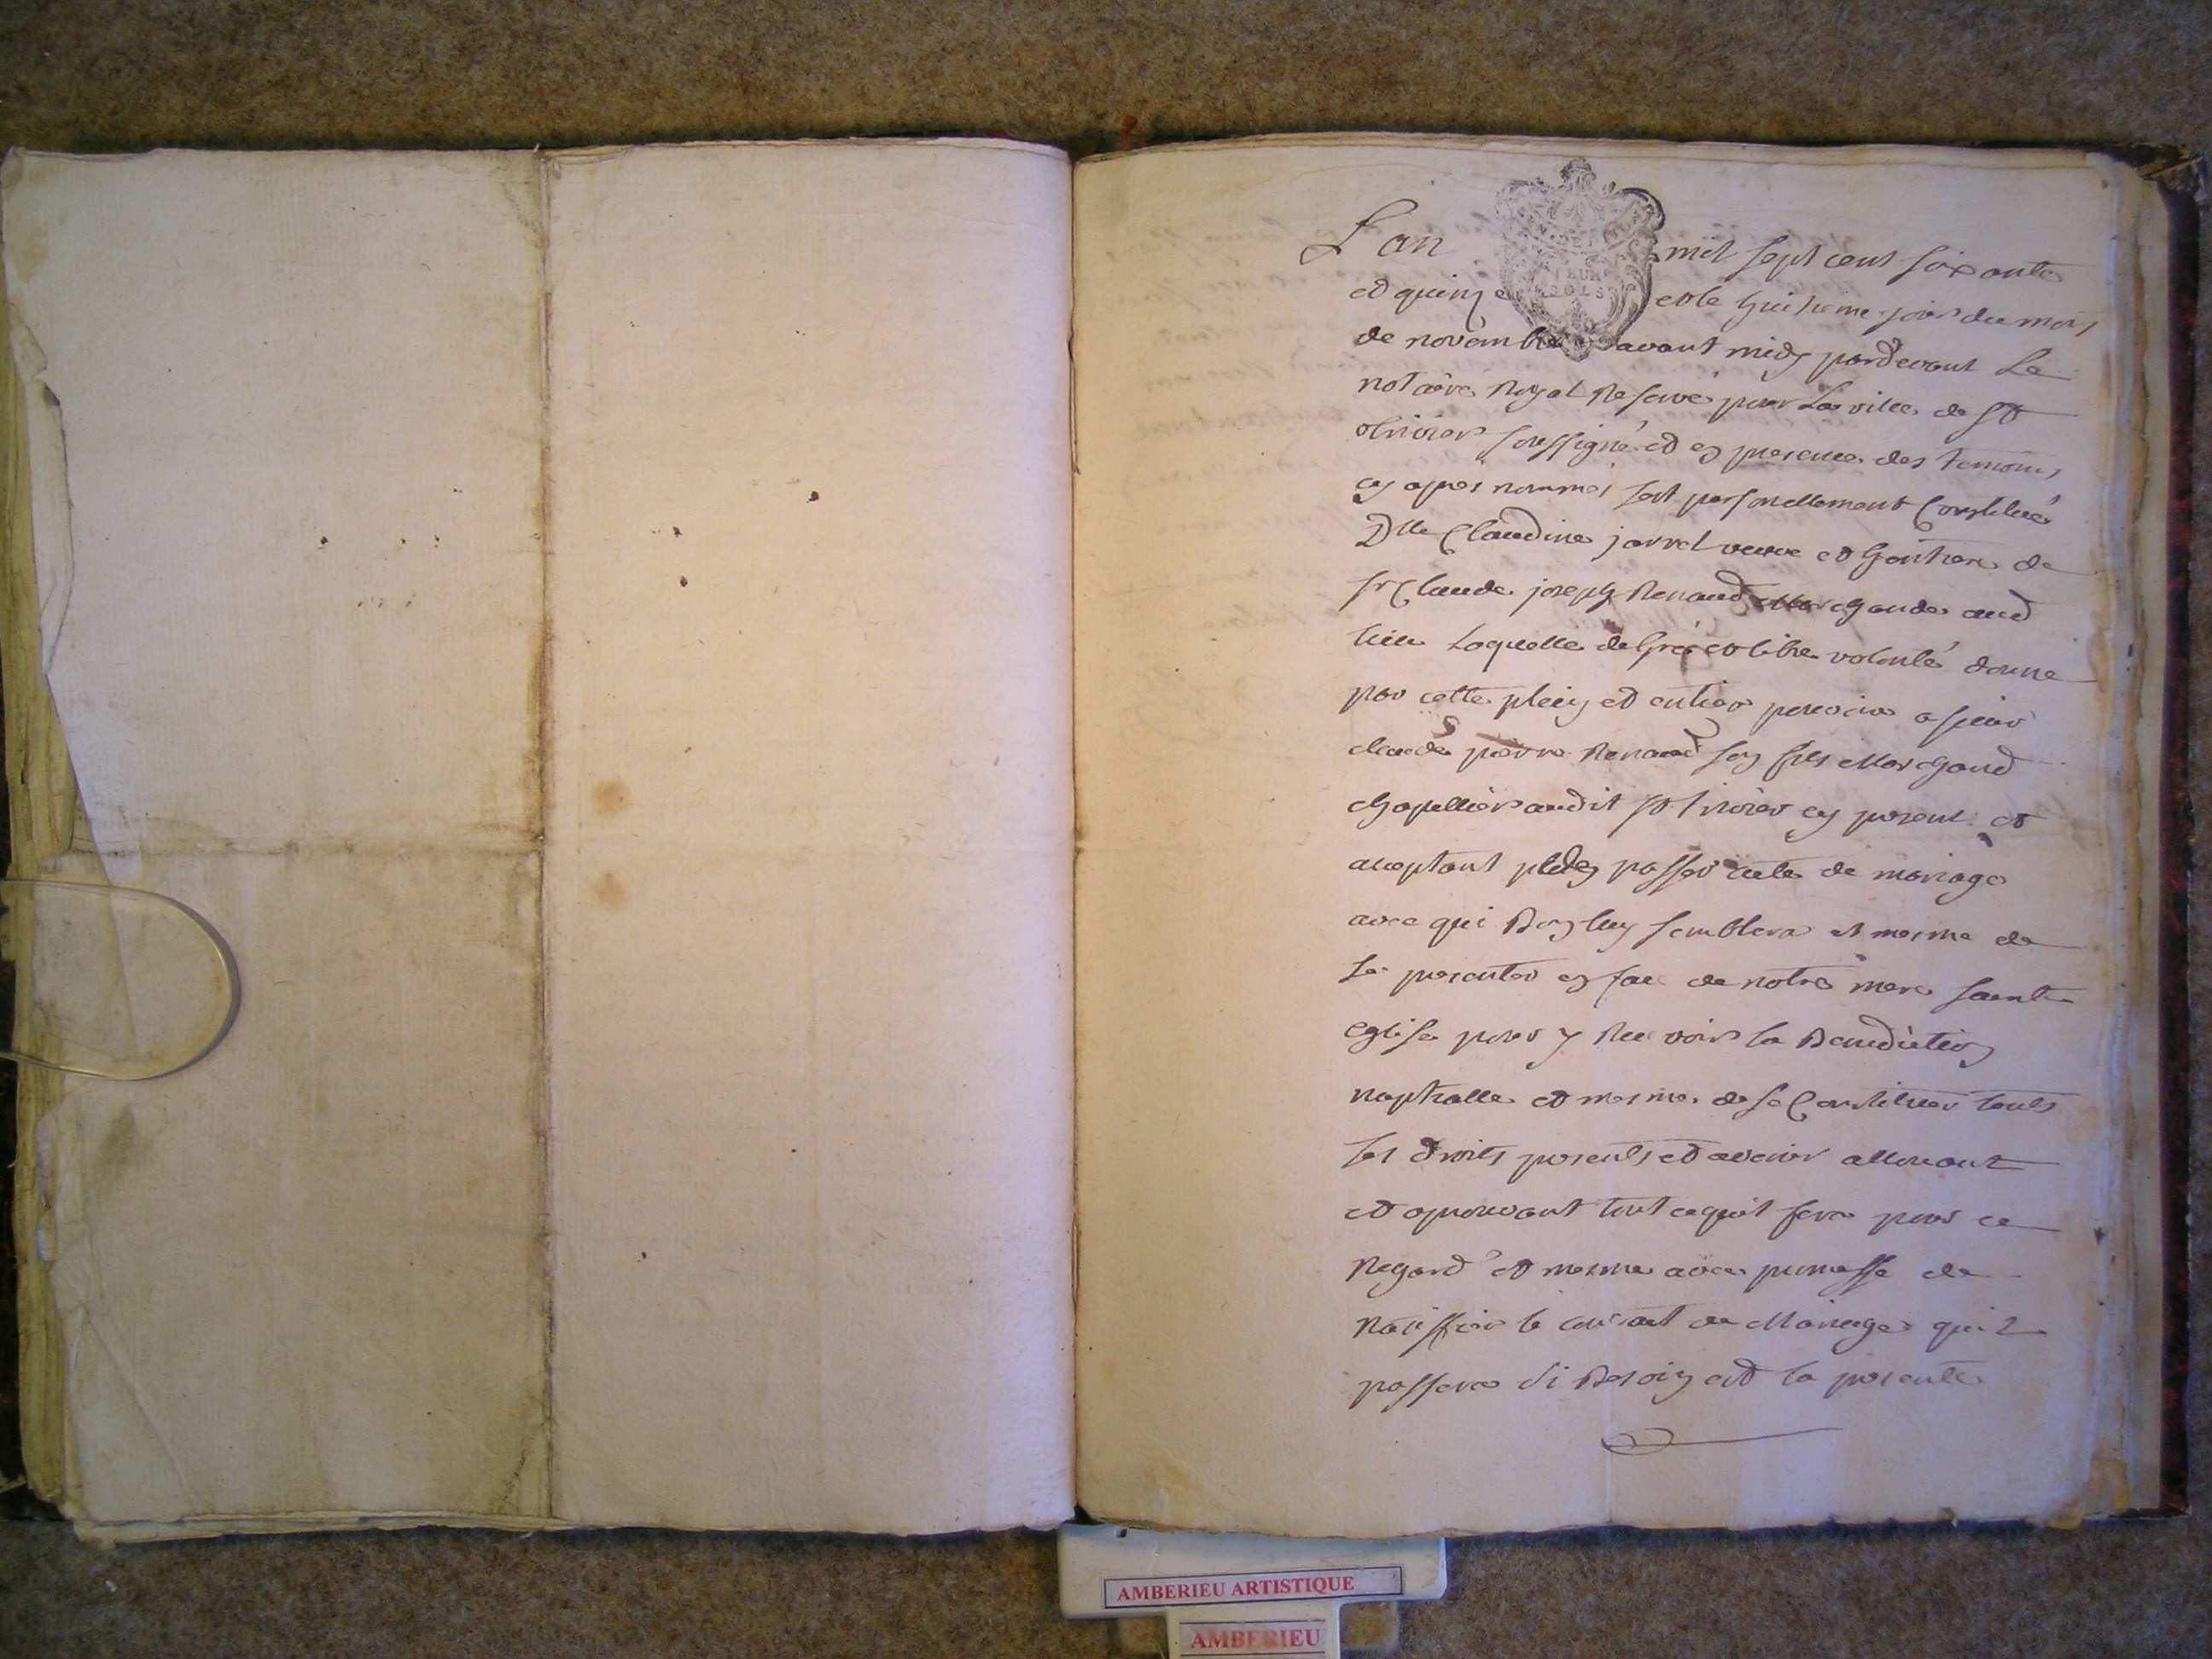 L'an mil sept cent soixante
et quinze et le huitieme jour du mois
de novembre avant midy pardevant Le
notaire Royal Reservé pour La ville de St
trivier soussigné et en presence des temoins
cy apres nommés s'est personnellement Constitué
Dlle Claudine jarret veuve et heritiere de
sr Claude joseph Renaud Marchande aud
lieu Laquelle de gré et libre volonté donne
par cette plein et entier pouvoir a sieur
claude pierre Renaud son fils Marchand
chapellier audit st trivier cy present et
acceptant passer acte de mariage
avec qui Bon luy semblera et mesme de
se presenter en face de notre mere sainte
eglise pour y Recevoir la Benediction
nuptialle et mesme de se Constituer touts
ses droits presents et avenir allouant
et aprouvant tout ce qu'il fera pour ce
Regard et mesme avec promesse de
Ratiffier le contract de Mariage qu'il
passera si Besoin est la presente
DEUX
SOLS
AMBERIEU ARTISTIQUE
AMBERIEU